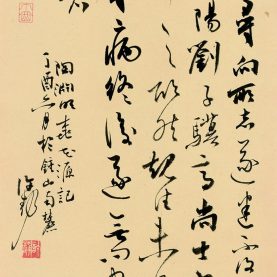 尋向所志遂迷不復
陽劉子驥高尚士
之欣然規往未
尋病終後遂無問
陶淵明桃花源記
丁酉六月於鍾山南麓